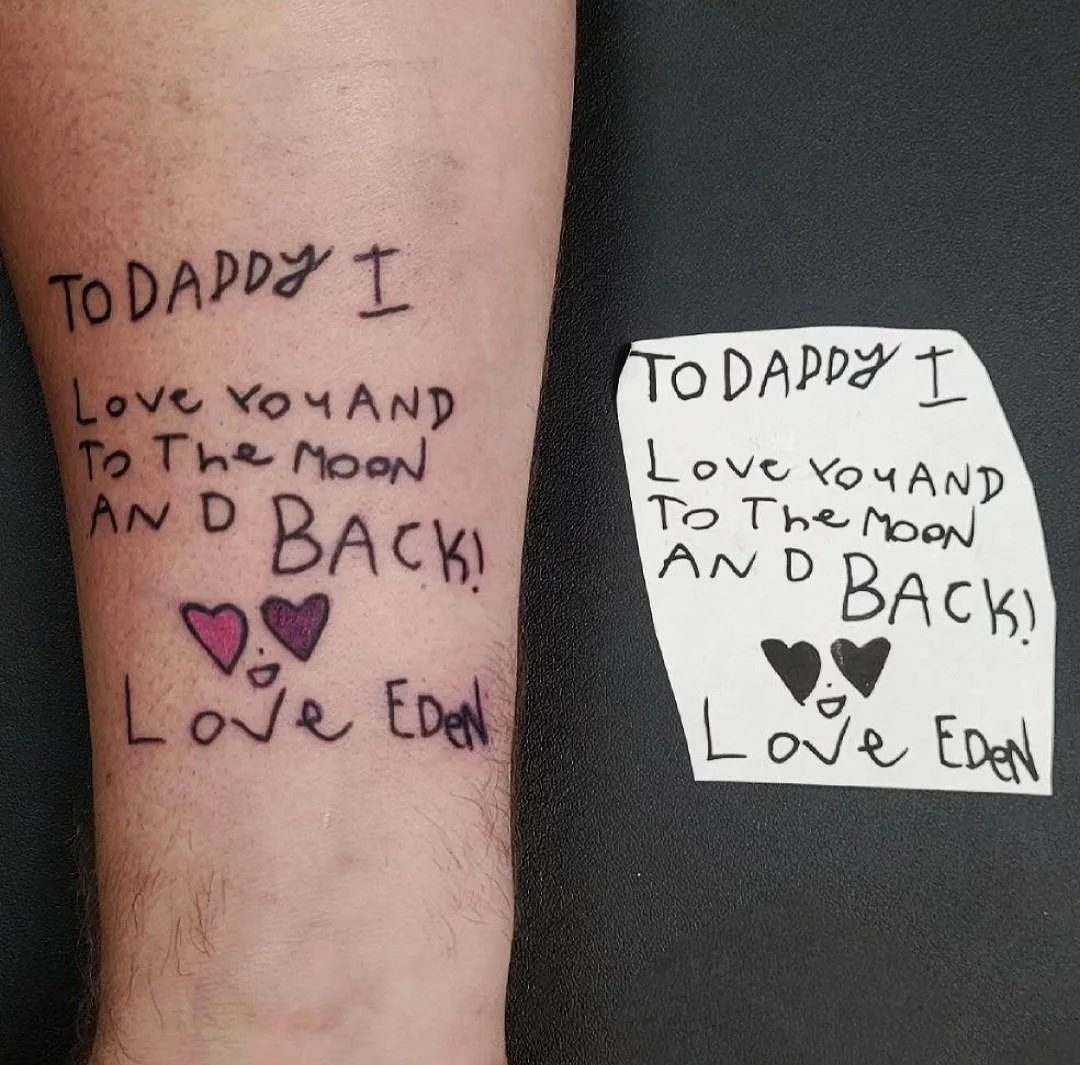 TO DADDY I
LOVE YOU AND
TO The MOON
AND BACK!
LOVe EDeN
TO DADDY I
LOVe YOU AND
TO The MOON
AND BACK!
LOVe EDeN